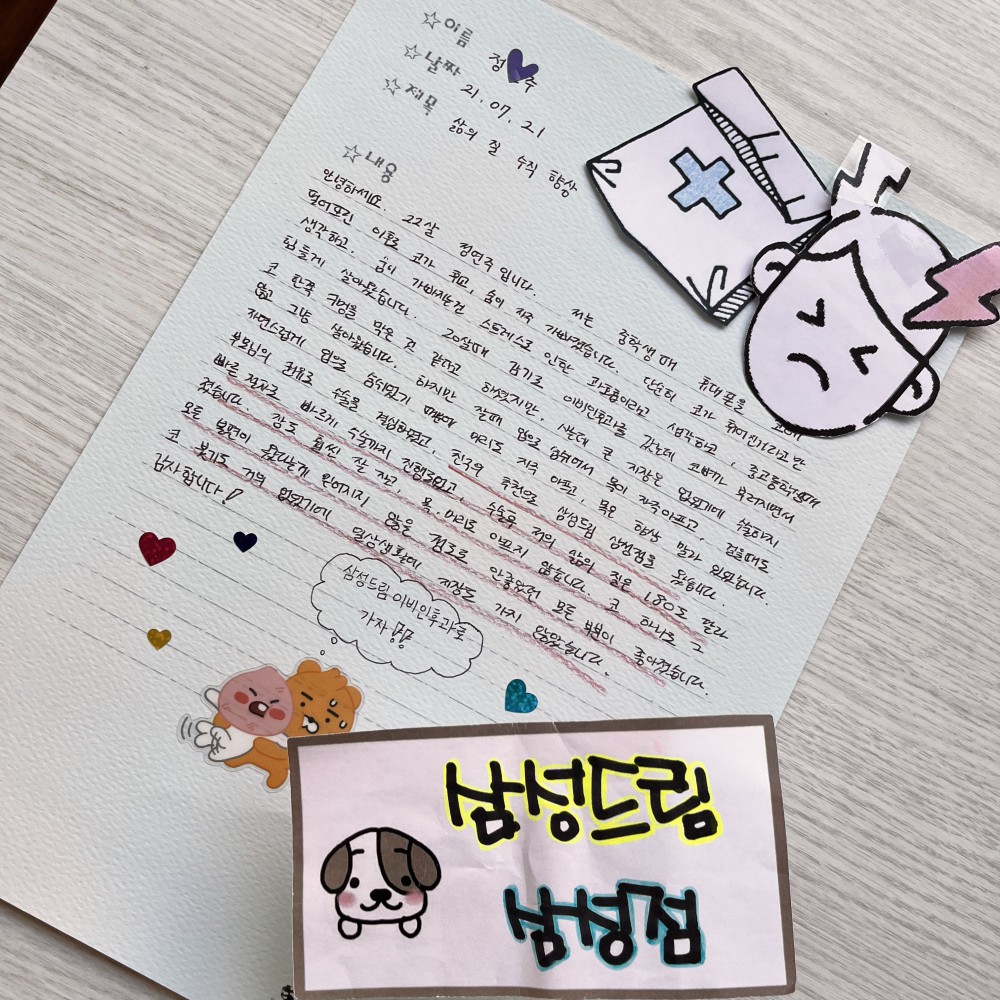 ☆이름 정 주
☆날짜 21.07.21
☆제목 삶의 질 수직 향상
☆내용
안녕하세요. 22살 정연주입니다. 저는 중학생때 휴대폰을 코에
떨어트린 이후로 코가 휘고, 숨이 자주 가빠졌습니다. 단순히 코가 휘어진거라고만
생각하고, 숨이 가빠지는건 스트레스로 인한 과호흡이라고 생각하고, 중고등학생때
힘들게 살아왔습니다. 20살때 감기로 이비인후과를 갔는데 코뼈가 부러지면서
코 한쪽 구멍을 막은 것 같다고 하셨지만, 사는데 큰 지장은 없었기에 하지
않고 그냥 살아왔습니다. 하지만 잘때 입을 숨쉬어서 목이 자주아프고, 걸을때도
자연스럽게 입을 숨쉬었기 때문에 머리도 자주 아프고, 목은 항상 말라 있었습니다.
부모님의 권유로 수술을 결심하였고, 친구의 추천으로 삼성드림 삼성점을 왔습니다.
빠른 절차로 바르게 수술까지 진행되었고, 수술후 저의 삶의 질은 180도 달라
졌습니다. 잠도 훨씬 잘 자고, 목,머리도 아프지 않습니다. 코 하나로 그
모든 불편이 왔다는게 믿어지지 않을 정도로 안좋았던 모든 부분이 좋아졌습니다.
코 붓기도 거의 없었기에 일상생활에 지장도 가지 않았습니다.
감사합니다!
삼성드림 이비인후과로
가자
삼성드림
삼성점